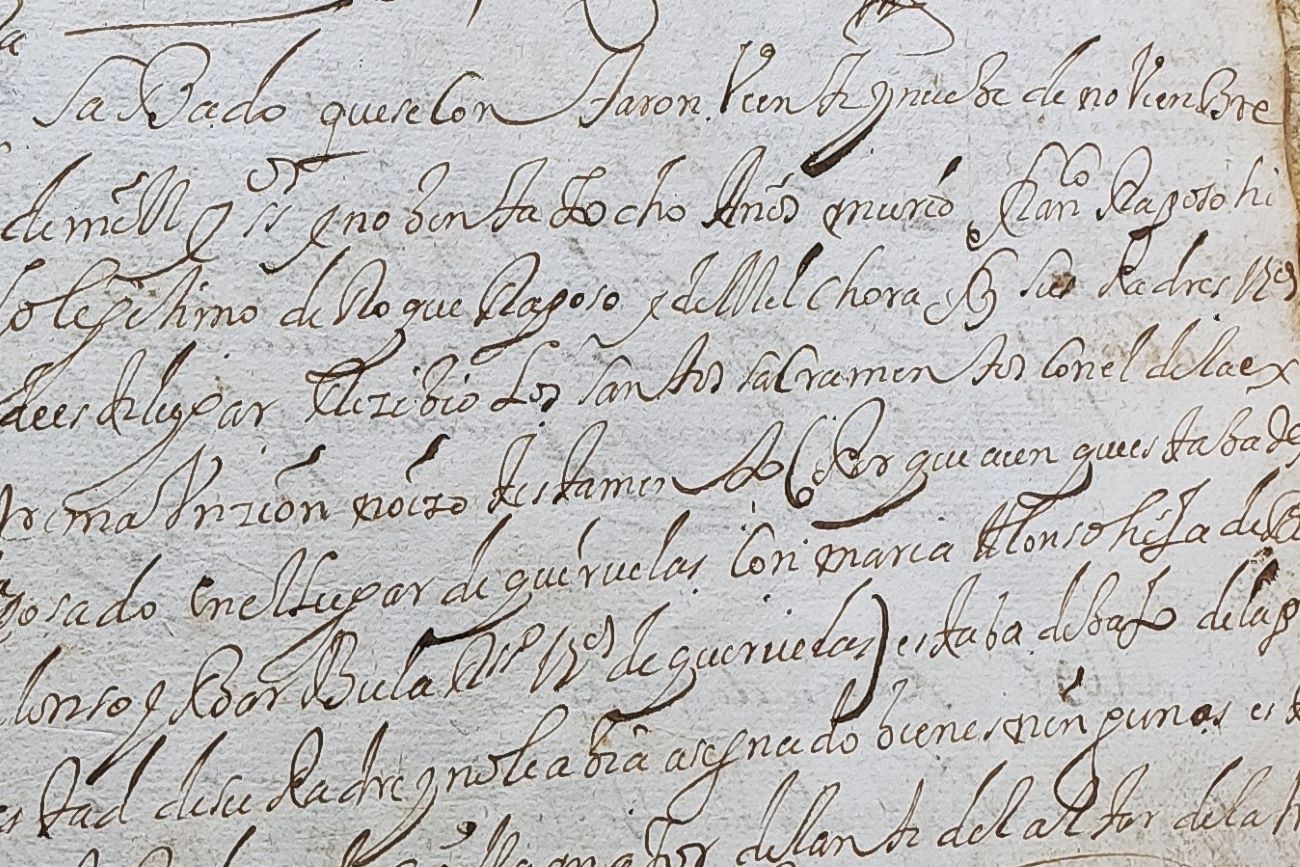 Sabado que se Con Taron Veentiynuebe de noVienbre
de mill y ss y nobenta Yocho Años murio Franco Raposo hi
Jo legitimo de Roque Raposo y de Melchora sus Padres Vos
deestelugar Rezibio Los santos sacramentos Conel delaex
trema Vnzion noizo testamento (Porque aun queestaba des
posado Enellugar de queruelas Con maria Alonso hiJa de
Alonso y BarBula Vos de queruelas) estaba debaJo delap
estad desu Padre ynole abia asegnado bienes ningunos
delante del altar dela